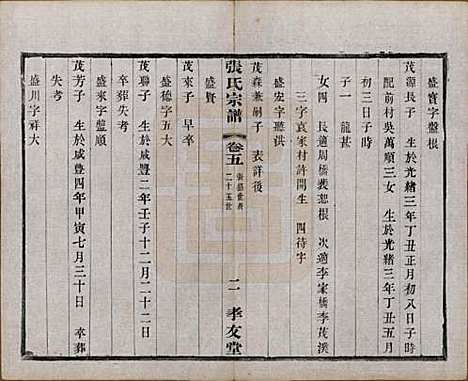 盛寶字盤根
茂源長子 生於光緒三年丁丑正月初八日子時
配前村吳萬順三女 生於光緒三年丁丑五月
初三日子時
子一 龍甚
女四 長適周橋裘恕根 次適李家橋李茂溪
三字袁家村許開生 四待字
盛安字聽洪
茂森兼嗣子 表詳後
張氏宗譜
卷五
二十五世
二
孝友堂
盛賢
茂來子 早卒
盛德字五大
茂聯子 生於咸豐二年壬子十二月二十二日
卒葬失考
盛來字盤順
茂芳子 生於咸豐四年甲寅七月三十日 卒葬
失考
盛川字祥大